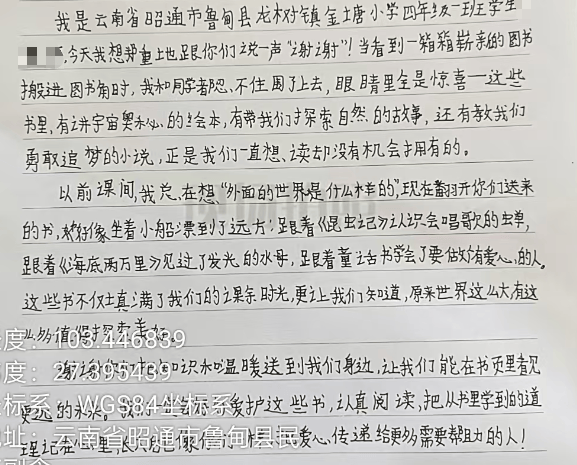 我是云南省昭通市鲁甸县龙树镇金塘小学四年级一班学生
,今天我想郑重地跟你们说一声"谢谢"!当看到一箱箱崭新的图书
搬进图书角时,我和同学都忍不住围了上去,眼睛里全是惊喜—这些
书里,有讲宇宙奥秘的绘本,有带我们探索自然的故事,还有教我们
勇敢追梦的小说,正是我们一直想读却没有机会拥有的。
以前课间,我总在想"外面的世界是什么样的",现在翻开你们送来
的书,就好像坐着小船漂到了远方:跟着《昆虫记》认识会唱歌的虫单,
跟着《海底两万里》见过了发光的水母,跟着童话书学会了要做有爱心的人。
这些书不仅填满了我们的课余时光,更让我们知道,原来世界这么大有这
么多值得探索美好。
谢谢你们把知识和温暖送到我们身边,让我们能在书页里看见
更远的未来。我们一定会好好爱护这些书,认真阅读,把从书里学到的道
理记在心里,长大后也像你们一样,把爱心传递给更多需要帮助的人!
度:103.446839
度:27.395439
标系:WGS84坐标系
址:云南省昭通市鲁甸县民